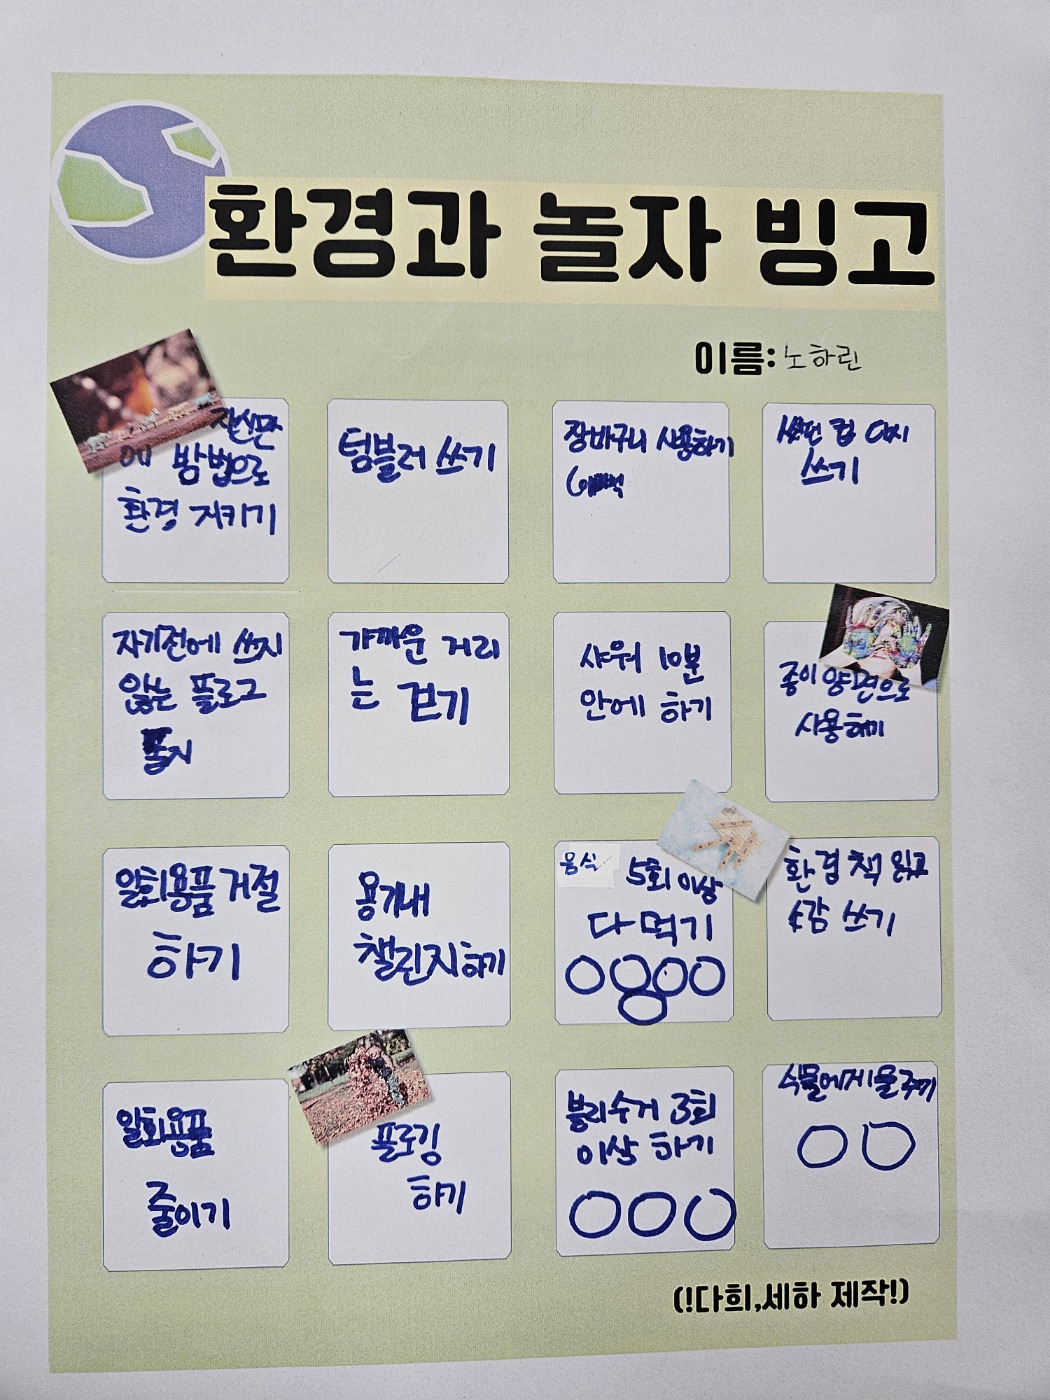 환경과 놀자 빙고
이름: 노하린
자신만
의 방법으로
환경 지키기
텀블러 쓰기
장바구니 사용하기
썼던 컵 다시
쓰기
자기전에 쓰지
않는 플로그
뽑기
가까운 거리
는 걷기
샤워 10분
안에 하기
종이 양면으로
사용하기
일회용품 거절
하기
용기내
챌린지하기
음식 5회 이상
다 먹기
환경 책 읽고
소감 쓰기
일회용품
줄이기
플로깅
하기
분리수거 3회
이상 하기
식물에게 물주기
(!다희,세하 제작!)